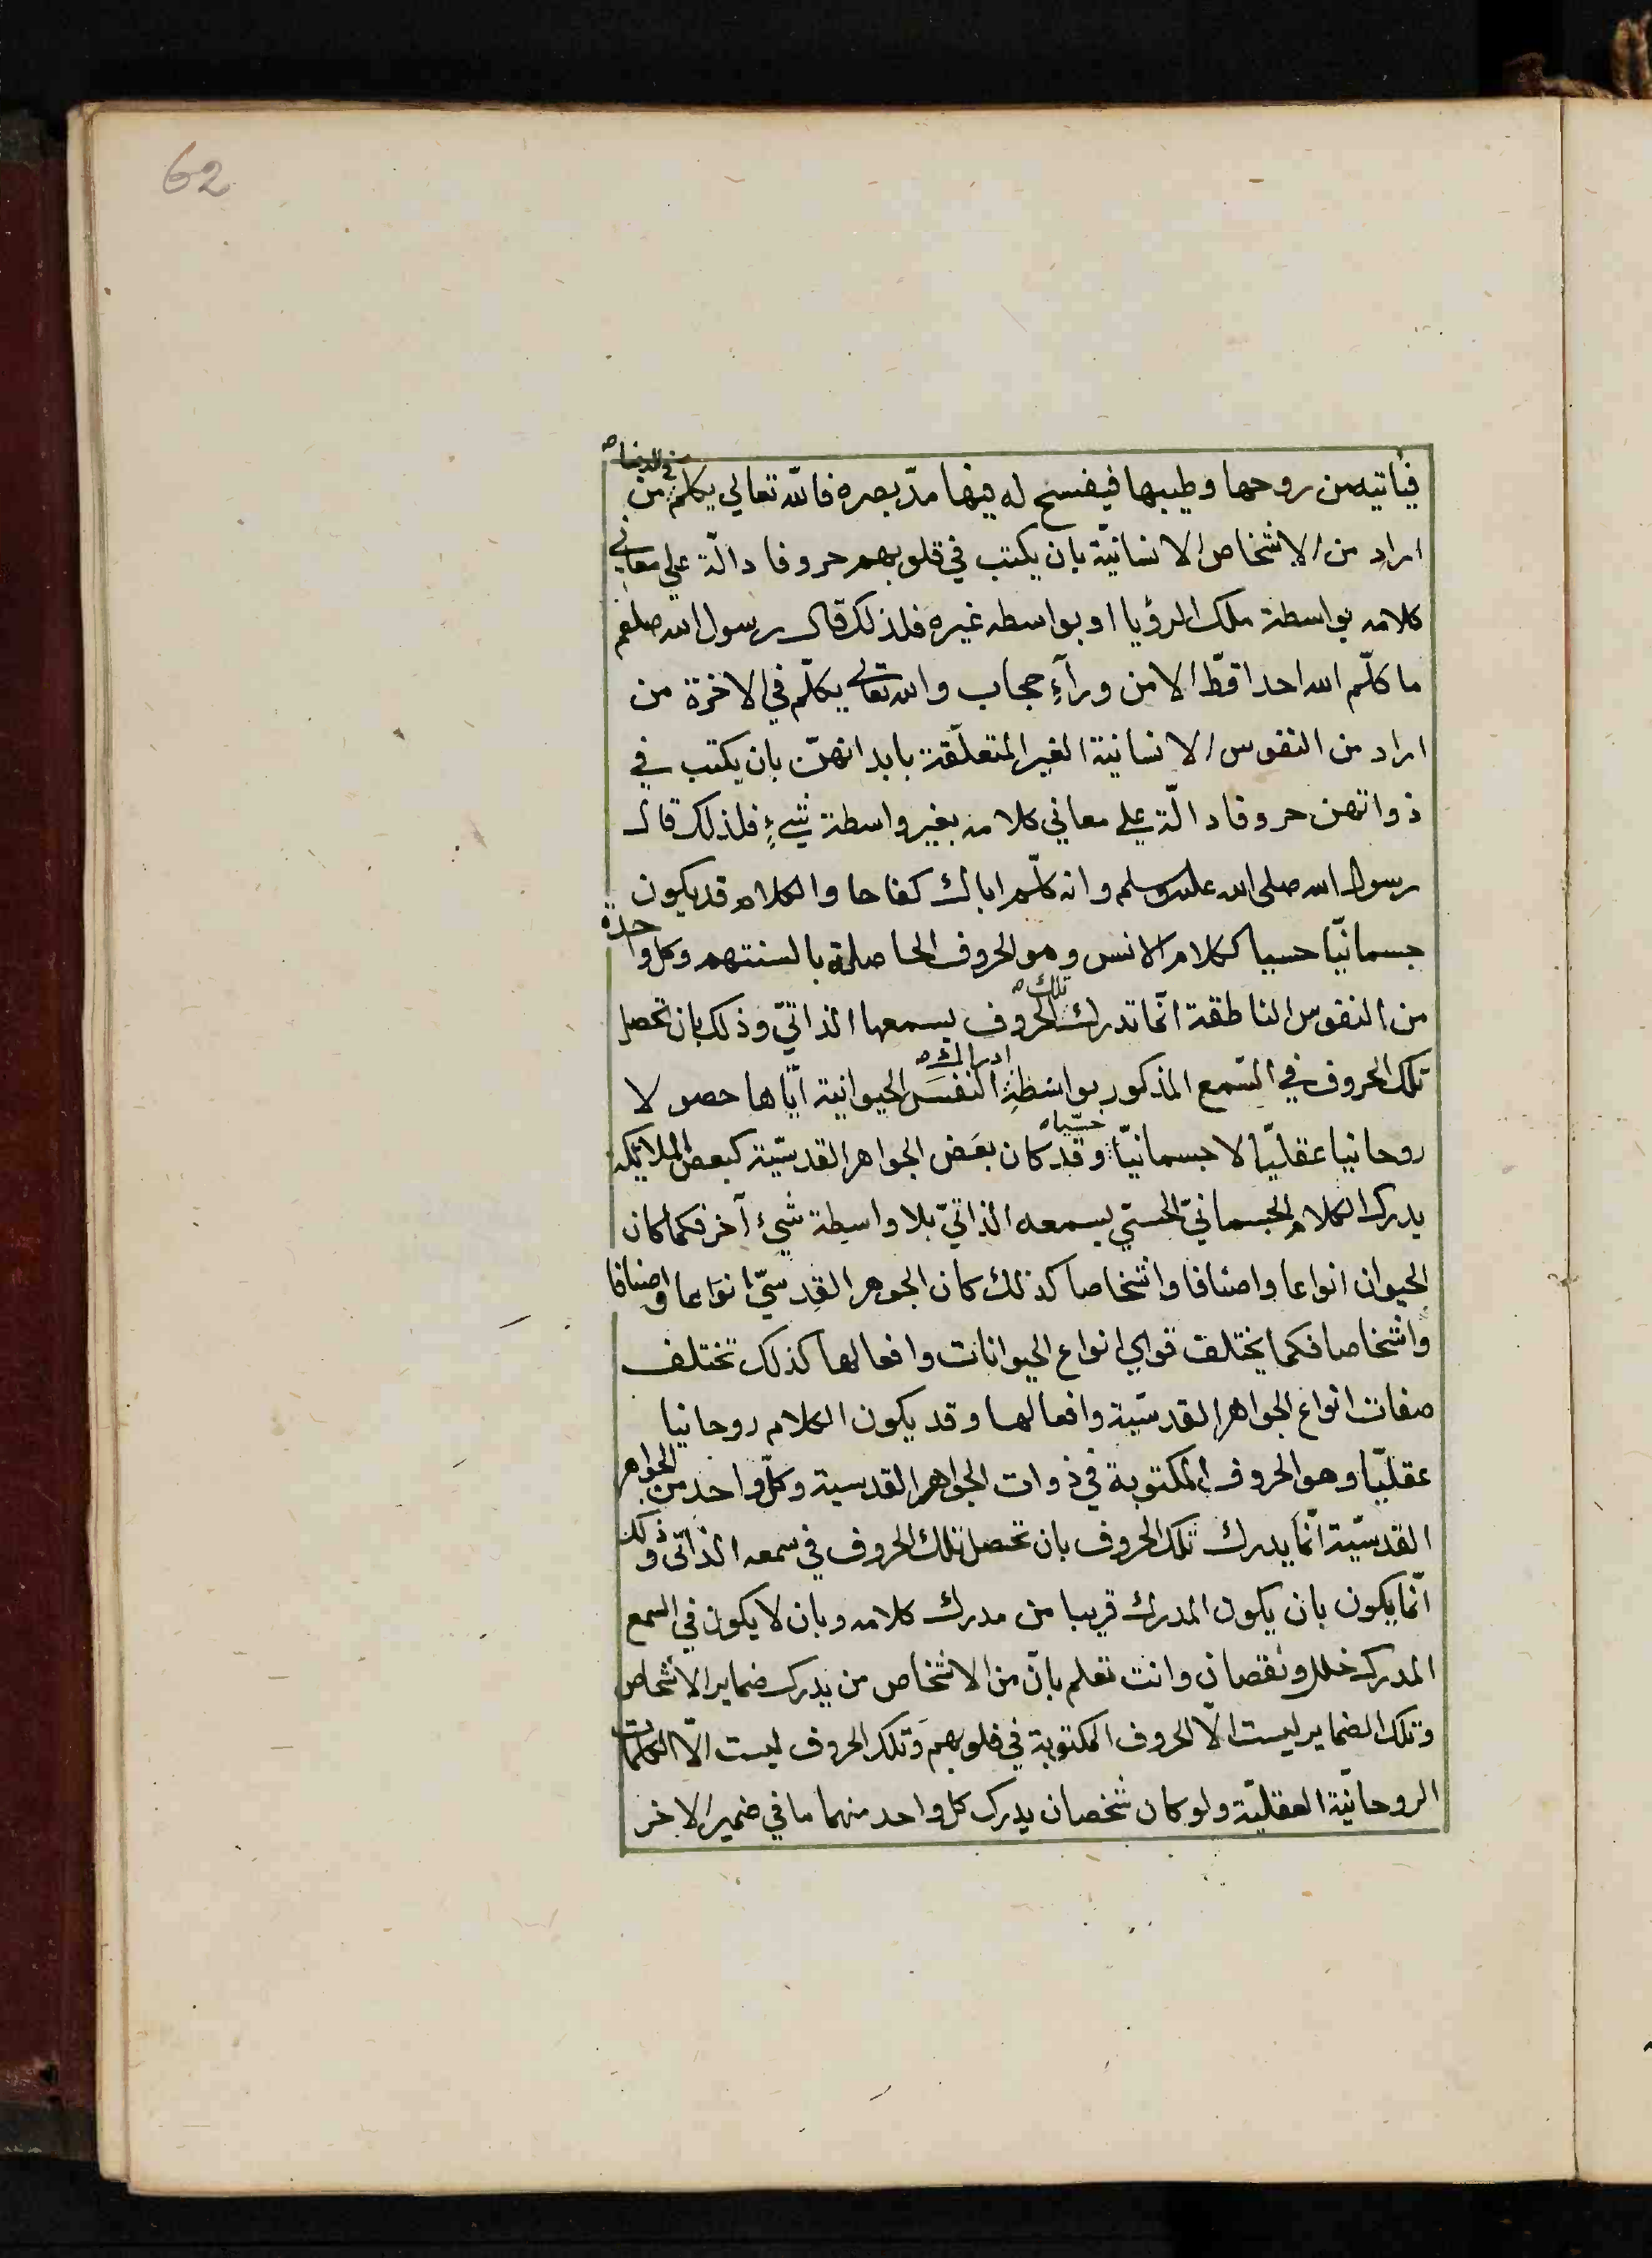 62
فيأتيه من روحها وطيبها فيفسح له فيها مدّ بصره فالله تعالي يكلم في الدنيا من
اراد من الاشخاص الانسانيّة بان يكتب في قلوبهم حروفا دالّة علي معاني
كلامه بواسطة ملك الرؤيا او بواسطه غيره فلذلك قال رسول الله صلعم
ما كلّم الله احدا قطّ الا من ورآءِ حجاب والله تعالي يكلّم في الاخرة من
اراد من النفوس الانسانية الغير المتعلّقة بابدانهنّ بان يكتب في
ذواتهن حروفا دالّة علي معاني كلامه بغير واسطة شيءٍ فلذلك قال
رسول الله صلى الله عليه وسلم وانه كلّم اباك كفاحا والكلام قد يكون
جسمانيّا حسيا ككلام الانس وهو الحروف الحاصلة بالسنتهم وكل واحدة
من النفوس الناطقة انّما تدرك تلك الحروف بسمعها الذاتيّ وذلك بان تحصل
تلك الحروف في السّمع المذكور بواسطةِ ادراك النفسَ الحيوانية ايّاها حصولا
روحانيا عقليّا لا جسمانيّا حسّيا وقد كان بعَض الجواهر القدسيّة كبعض الملايكة
يدرك الكلام الجسمانيّ الحسّي بسمعه الذاتيّ بلا واسطة شيء آخر فكما كان
الحيوان انواعا واصنافا واشخاصا كذلك كان الجوهر القدسيّ انوَاعا واصنافا
واشخاصا فكما يختلف قواي انواع الحيوانات وافعالها كذلك تختلف
صفات انواع الجواهر القدسيّة وافعالها وقد يكون الكلام روحانيا
عقليّا وهو الحروف المكتوبة في ذوات الجواهر القدسية وكلّ واحد من الجواهر
القدسيّة انّما يدرك تلك الحروف بان تحصل تلك الحروف في سمعه الذاتّى وذلك
انّما يكون بان يكون المدرك قريبا من مدرك كلامه وبان لا يكون في السمع
المدرك خلل ونقصان وانت تعلم بانّ من الاشخاص من يدرك ضماير الاشخاص
وتلك الضماير ليست الّا الحروف المكتوبة في قلوبهم وتلك الحروف ليست الّا الكلمات
الروحانيّة العقليّة ولو كان شخصان يدرك كل واحد منهما ما في ضمير الاخر